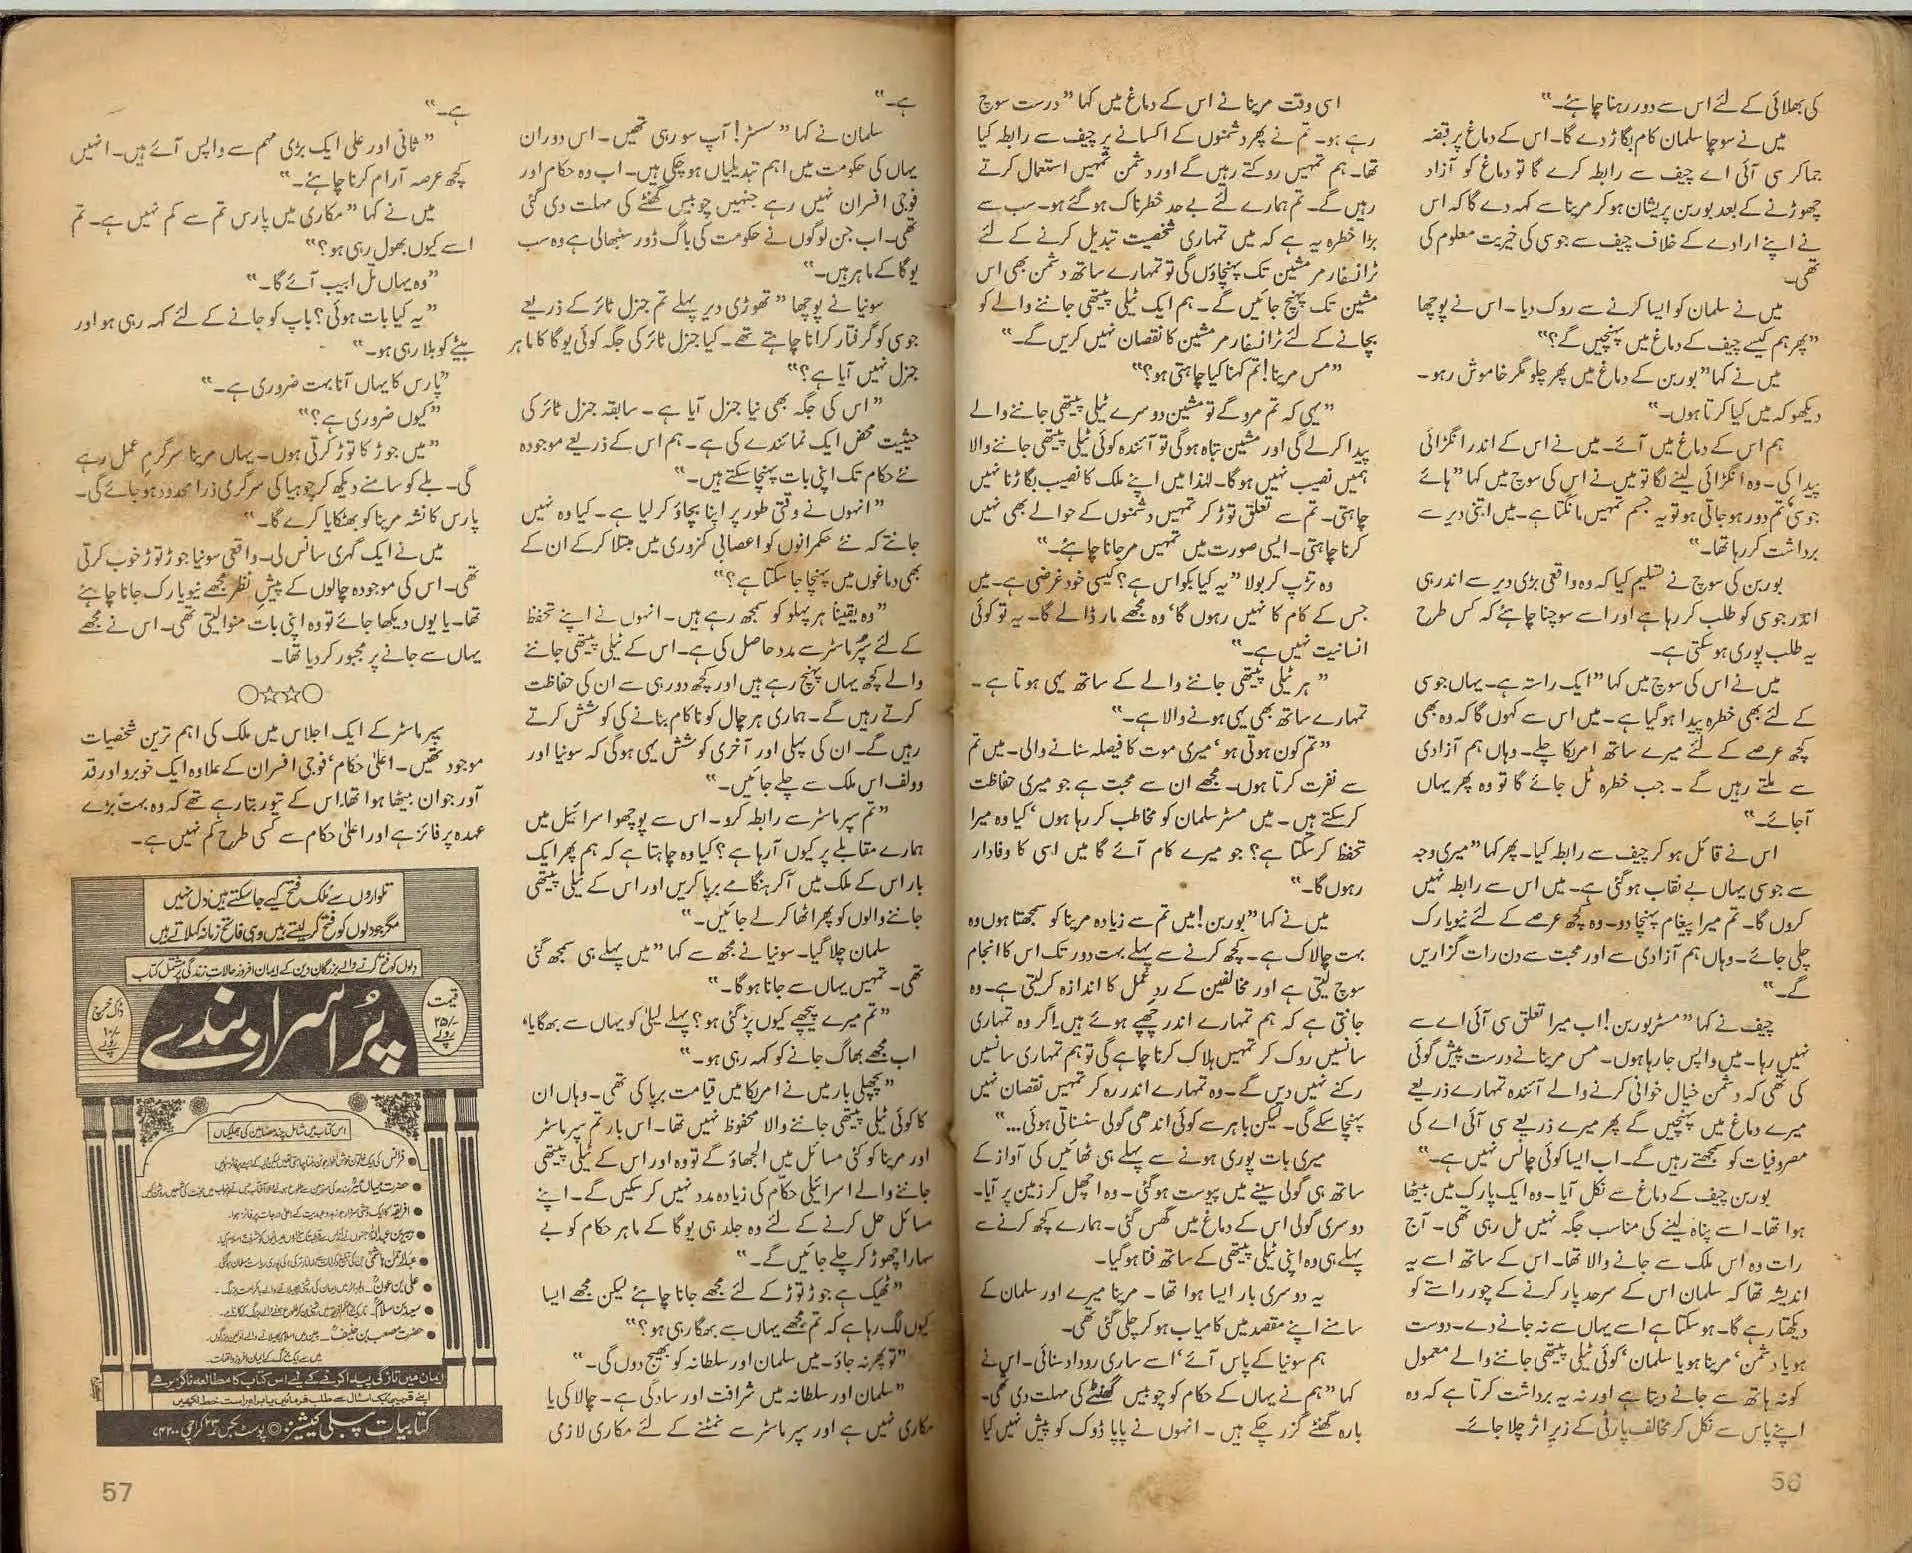 کی بھلائی کے لئے اس سے دور رہنا چاہئے۔"
میں نے سوچا سلمان کام بگاڑ دے گا۔ اس کے دماغ پر قبضہ
جما کر سی آئی اے چیف سے رابطہ کرے گا تو دماغ کو آزاد
چھوڑنے کے بعد بوربن پریشان ہو کر مرینا سے کہہ دے گا کہ اس
نے اپنے ارادے کے خلاف چیف سے جوسی کی خیریت معلوم کی
تھی۔
میں نے سلمان کو ایسا کرنے سے روک دیا۔ اس نے پوچھا
"پھر ہم کیسے چیف کے دماغ میں پہنچیں گے؟"
میں نے کہا "بوربن کے دماغ میں پھر چلو مگر خاموش رہو۔
دیکھو کہ میں کیا کرتا ہوں۔"
ہم اس کے دماغ میں آئے۔ میں نے اس کے اندر انگڑائی
پیدا کی۔ وہ انگڑائی لینے لگا تو میں نے اس کی سوچ میں کہا "ہائے
جوسی! تم دور ہو جاتی ہو تو یہ جسم تمہیں مانگتا ہے۔ میں اتنی دیر سے
برداشت کر رہا تھا۔"
بوربن کی سوچ نے تسلیم کیا کہ وہ واقعی بڑی دیر سے اندر ہی
اندر جوسی کو طلب کر رہا ہے اور اسے سوچنا چاہئے کہ کس طرح
یہ طلب پوری ہو سکتی ہے۔
میں نے اس کی سوچ میں کہا "ایک راستہ ہے۔ یہاں جوسی
کے لئے بھی خطرہ پیدا ہو گیا ہے۔ میں اس سے کہوں گا کہ وہ بھی
کچھ عرصے کے لئے میرے ساتھ امریکا چلے۔ وہاں ہم آزادی
سے ملتے رہیں گے۔ جب خطرہ ٹل جائے گا تو وہ پھر یہاں
آ جائے۔"
اس نے قائل ہو کر چیف سے رابطہ کیا۔ پھر کہا "میری وجہ
سے جوسی یہاں بے نقاب ہو گئی ہے۔ میں اس سے رابطہ نہیں
کروں گا۔ تم میرا پیغام پہنچا دو۔ وہ کچھ عرصے کے لئے نیویارک
چلی جائے۔ وہاں ہم آزادی سے اور محبت سے دن رات گزاریں
گے۔"
چیف نے کہا "مسٹر بوربن! اب میرا تعلق سی آئی اے سے
نہیں رہا۔ میں واپس جا رہا ہوں۔ مس مرینا نے درست پیش گوئی
کی تھی کہ دشمن خیال خوانی کرنے والے آئندہ تمہارے ذریعے
میرے دماغ میں پہنچیں گے پھر میرے ذریعے سی آئی اے کی
مصروفیات کو سمجھتے رہیں گے۔ اب ایسا کوئی چانس نہیں ہے۔"
بوربن چیف کے دماغ سے نکل آیا۔ وہ ایک پارک میں بیٹھا
ہوا تھا۔ اسے پناہ لینے کی مناسب جگہ نہیں مل رہی تھی۔ آج
رات وہ اس ملک سے جانے والا تھا۔ اس کے ساتھ اسے یہ
اندیشہ تھا کہ سلمان اس کے سرحد پار کرنے کے چور راستے کو
دیکھتا رہے گا۔ ہو سکتا ہے اسے یہاں سے نہ جانے دے۔ دوست
ہو یا دشمن، مرینا ہو یا سلمان، کوئی ٹیلی پیتھی جاننے والے معمول
کو نہ ہاتھ سے جانے دیتا ہے اور نہ یہ برداشت کرتا ہے کہ وہ
اپنے پاس سے نکل کر مخالف پارٹی کے زیر اثر چلا جائے۔
اسی وقت مرینا نے اس کے دماغ میں کہا "درست سوچ
رہے ہو۔ تم نے پھر دشمنوں کے اکسانے پر چیف سے رابطہ کیا
تھا۔ ہم تمہیں روکتے رہیں گے اور دشمن تمہیں استعمال کرتے
رہیں گے۔ تم ہمارے لئے بے حد خطرناک ہو گئے ہو۔ سب سے
بڑا خطرہ یہ ہے کہ میں تمہاری شخصیت تبدیل کرنے کے لئے
ٹرانسفارمر مشین تک پہنچاؤں گی تو تمہارے ساتھ دشمن بھی اس
مشین تک پہنچ جائیں گے۔ ہم ایک ٹیلی پیتھی جاننے والے کو
بچانے کے لئے ٹرانسفارمر مشین کا نقصان نہیں کریں گے۔"
"مس مرینا! تم کہنا کیا چاہتی ہو؟"
"یہی کہ تم مرو گے تو مشین دوسرے ٹیلی پیتھی جاننے والے
پیدا کر لے گی اور مشین تباہ ہو گی تو آئندہ کوئی ٹیلی پیتھی جاننے والا
ہمیں نصیب نہیں ہو گا۔ لہٰذا میں اپنے ملک کا نصیب بگاڑنا نہیں
چاہتی۔ تم سے تعلق توڑ کر تمہیں دشمنوں کے حوالے بھی نہیں
کرنا چاہتی۔ ایسی صورت میں تمہیں مر جانا چاہئے۔"
وہ تڑپ کر بولا "یہ کیا بکواس ہے؟ کیسی خود غرضی ہے۔ میں
جس کے کام کا نہیں رہوں گا، وہ مجھے مار ڈالے گا۔ یہ تو کوئی
انسانیت نہیں ہے۔"
"ہر ٹیلی پیتھی جاننے والے کے ساتھ یہی ہوتا ہے۔
تمہارے ساتھ بھی یہی ہونے والا ہے۔"
"تم کون ہوتی ہو، میری موت کا فیصلہ سنانے والی۔ میں تم
سے نفرت کرتا ہوں۔ مجھے ان سے محبت ہے جو میری حفاظت
کر سکتے ہیں۔ میں مسٹر سلمان کو مخاطب کر رہا ہوں، کیا وہ میرا
تحفظ کر سکتا ہے؟ جو میرے کام آئے گا میں اسی کا وفادار
رہوں گا۔"
میں نے کہا "بوربن! میں تم سے زیادہ مرینا کو سمجھتا ہوں وہ
بہت چالاک ہے۔ کچھ کرنے سے پہلے بہت دور تک اس کا انجام
سوچ لیتی ہے اور مخالفین کے ردِ عمل کا اندازہ کر لیتی ہے۔ وہ
جانتی ہے کہ ہم تمہارے اندر چھپے ہوئے ہیں اگر وہ تمہاری
سانسیں روک کر تمہیں ہلاک کرنا چاہے گی تو ہم تمہاری سانسیں
رکنے نہیں دیں گے۔ وہ تمہارے اندر رہ کر تمہیں نقصان نہیں
پہنچا سکے گی۔ لیکن باہر سے کوئی اندھی گولی سنسناتی ہوئی..."
میری بات پوری ہونے سے پہلے ہی ٹھائیں کی آواز کے
ساتھ ہی گولی سینے میں پیوست ہو گئی۔ وہ اچھل کر زمین پر آیا۔
دوسری گولی اس کے دماغ میں گھس گئی۔ ہمارے کچھ کرنے سے
پہلے ہی وہ اپنی ٹیلی پیتھی کے ساتھ فنا ہو گیا۔
یہ دوسری بار ایسا ہوا تھا۔ مرینا میرے اور سلمان کے
سامنے اپنے مقصد میں کامیاب ہو کر چلی گئی تھی۔
ہم سونیا کے پاس آئے، اسے ساری روداد سنائی۔ اس نے
کہا "ہم نے یہاں کے حکام کو چوبیس گھنٹے کی مہلت دی تھی۔
بارہ گھنٹے گزر چکے ہیں۔ انہوں نے پاپا ڈوک کو پیش نہیں کیا
56
ہے۔"
سلمان نے کہا "سسٹر! آپ سو رہی تھیں۔ اس دوران
یہاں کی حکومت میں اہم تبدیلیاں ہو چکی ہیں۔ اب وہ حکام اور
فوجی افسران نہیں رہے جنہیں چوبیس گھنٹے کی مہلت دی گئی
تھی۔ اب جن لوگوں نے حکومت کی باگ ڈور سنبھالی ہے وہ سب
یوگا کے ماہر ہیں۔"
سونیا نے پوچھا "تھوڑی دیر پہلے تم جنرل ٹائر کے ذریعے
جوسی کو گرفتار کرانا چاہتے تھے۔ کیا جنرل ٹائر کی جگہ کوئی یوگا کا ماہر
جنرل نہیں آیا ہے؟"
"اس کی جگہ بھی نیا جنرل آیا ہے۔ سابقہ جنرل ٹائر کی
حیثیت محض ایک نمائندے کی ہے۔ ہم اس کے ذریعے موجودہ
نئے حکام تک اپنی بات پہنچا سکتے ہیں۔"
"انہوں نے وقتی طور پر اپنا بچاؤ کر لیا ہے۔ کیا وہ نہیں
جانتے کہ نئے حکمرانوں کو اعصابی کمزوری میں مبتلا کر کے ان کے
بھی دماغوں میں پہنچا جا سکتا ہے؟"
"وہ یقیناً ہر پہلو کو سمجھ رہے ہیں۔ انہوں نے اپنے تحفظ
کے لئے سپر ماسٹر سے مدد حاصل کی ہے۔ اس کے ٹیلی پیتھی جاننے
والے کچھ یہاں پہنچ رہے ہیں اور کچھ دور ہی سے ان کی حفاظت
کرتے رہیں گے۔ ہماری ہر چال کو ناکام بنانے کی کوشش کرتے
رہیں گے۔ ان کی پہلی اور آخری کوشش یہی ہو گی کہ سونیا اور
وولف اس ملک سے چلے جائیں۔"
"تم سپر ماسٹر سے رابطہ کرو۔ اس سے پوچھو اسرائیل میں
ہمارے مقابلے پر کیوں آ رہا ہے؟ کیا وہ چاہتا ہے کہ ہم پھر ایک
بار اس کے ملک میں آ کر ہنگامے برپا کریں اور اس کے ٹیلی پیتھی
جاننے والوں کو پھر اٹھا کر لے جائیں۔"
سلمان چلا گیا۔ سونیا نے مجھ سے کہا "میں پہلے ہی سمجھ گئی
تھی۔ تمہیں یہاں سے جانا ہو گا۔"
"تم میرے پیچھے کیوں پڑ گئی ہو؟ پہلے لیلیٰ کو یہاں سے بھگایا،
اب مجھے بھاگ جانے کو کہہ رہی ہو۔"
"پچھلی بار میں نے امریکا میں قیامت برپا کی تھی۔ وہاں ان
کا کوئی ٹیلی پیتھی جاننے والا محفوظ نہیں تھا۔ اس بار تم سپر ماسٹر
اور مرینا کو کئی مسائل میں الجھاؤ گے تو وہ اور اس کے ٹیلی پیتھی
جاننے والے اسرائیلی حکام کی زیادہ مدد نہیں کر سکیں گے۔ اپنے
مسائل حل کرنے کے لئے وہ جلد ہی یوگا کے ماہر حکام کو بے
سہارا چھوڑ کر چلے جائیں گے۔"
"ٹھیک ہے جوڑ توڑ کے لئے مجھے جانا چاہئے لیکن مجھے ایسا
کیوں لگ رہا ہے کہ تم مجھے یہاں سے بھگا رہی ہو؟"
"تو پھر نہ جاؤ۔ میں سلمان اور سلطانہ کو بھیج دوں گی۔"
"سلمان اور سلطانہ میں شرافت اور سادگی ہے۔ چالاکی یا
مکاری نہیں ہے اور سپر ماسٹر سے نمٹنے کے لئے مکاری لازی
ہے۔"
"ثانی اور علی ایک بڑی مہم سے واپس آئے ہیں۔ انہیں
کچھ عرصہ آرام کرنا چاہئے۔"
میں نے کہا "مکاری میں پارس تم سے کم نہیں ہے۔ تم
اسے کیوں بھول رہی ہو؟"
"وہ یہاں تل ابیب آئے گا۔"
"یہ کیا بات ہوئی؟ باپ کو جانے کے لئے کہہ رہی ہو اور
بیٹے کو بلا رہی ہو۔"
"پارس کا یہاں آنا بہت ضروری ہے۔"
"کیوں ضروری ہے؟"
"میں جوڑ کا توڑ کرتی ہوں۔ یہاں مرینا سرگرمِ عمل رہے
گی۔ بلے کو سامنے دیکھ کر چوہیا کی سرگرمی ذرا محدود ہو جائے گی۔
پارس کا نشہ مرینا کو بھٹکایا کرے گا۔"
میں نے ایک گہری سانس لی۔ واقعی سونیا جوڑ توڑ خوب کرتی
تھی۔ اس کی موجودہ چالوں کے پیشِ نظر مجھے نیویارک جانا چاہئے
تھا۔ یا یوں دیکھا جائے تو وہ اپنی بات منوا لیتی تھی۔ اس نے مجھے
یہاں سے جانے پر مجبور کر دیا تھا۔
○☆☆○
سپر ماسٹر کے ایک اجلاس میں ملک کی اہم ترین شخصیات
موجود تھیں۔ اعلیٰ حکام، فوجی افسران کے علاوہ ایک خوبرو اور قد
آور جوان بیٹھا ہوا تھا۔ اس کے تیور بتا رہے تھے کہ وہ بہت بڑے
عہدہ پر فائز ہے اور اعلیٰ حکام سے کسی طرح کم نہیں ہے۔
تلواروں سے مُلک فتح کیے جا سکتے ہیں دل نہیں
مگر جو دلوں کو فتح کر لیتے ہیں وہی فاتح زمانہ کہلاتے ہیں
دلوں کو فتح کرنے والے بزرگانِ دین کے ایمان افروز حالاتِ زندگی پر مشتمل کتاب
قیمت ۲۵/- روپے
پُراسرار بندے
ڈاک خرچ ۱۰/- روپے
اس کتاب میں شامل چند مضامین کی جھلکیاں
میں سے ایک بزرگ کے ایمان افروز واقعات۔
ایمان میں تازگی پیدا کرنے کے لیے اس کتاب کا مطالعہ ناگزیر ہے
اپنے قریبی بک اسٹال سے طلب فرمائیں یا براہِ راست خط لکھیں
کتابیات پبلی کیشنز ۞ پوسٹ بکس نمبر ۲۳ کراچی ۷۴۲۰۰
57